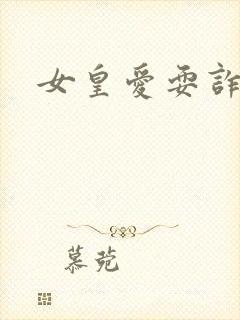 女皇愛耍詐
慕菀